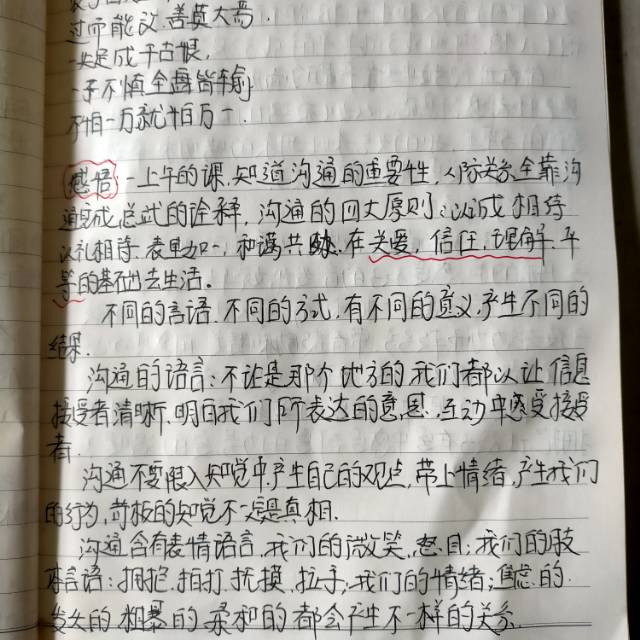 过而能改,善莫大焉.
一失足成千古恨,
一子不慎全盘皆输
不怕一万就怕万一.
感悟:一上午的课,知道沟通的重要性,人际关系全靠沟
通完成总武的诠释,沟通的四大原则:以诚相待
以礼相待.表里如一,和谐共融.在关爱,信任,理解.平
等的基础出去生活。
不同的言语.不同的方式,有不同的意义,产生不同的
结果.
沟通的语言:不论是那个地方的,我们都以让信息
接受者清晰.明白我们所表达的意思.互动中感受接受
者.
沟通不要限入知觉中,产生自己的观点,带上情绪,产生我们
的行为,苛板的知觉不一定是真相.
沟通含有表情语言,我们的微笑,怒目;我们的肢
体言语:拥抱.拍打.抚摸.拉手;我们的情绪;焦虑的.
发火的.粗暴的.柔和的都会产生不一样的关系.